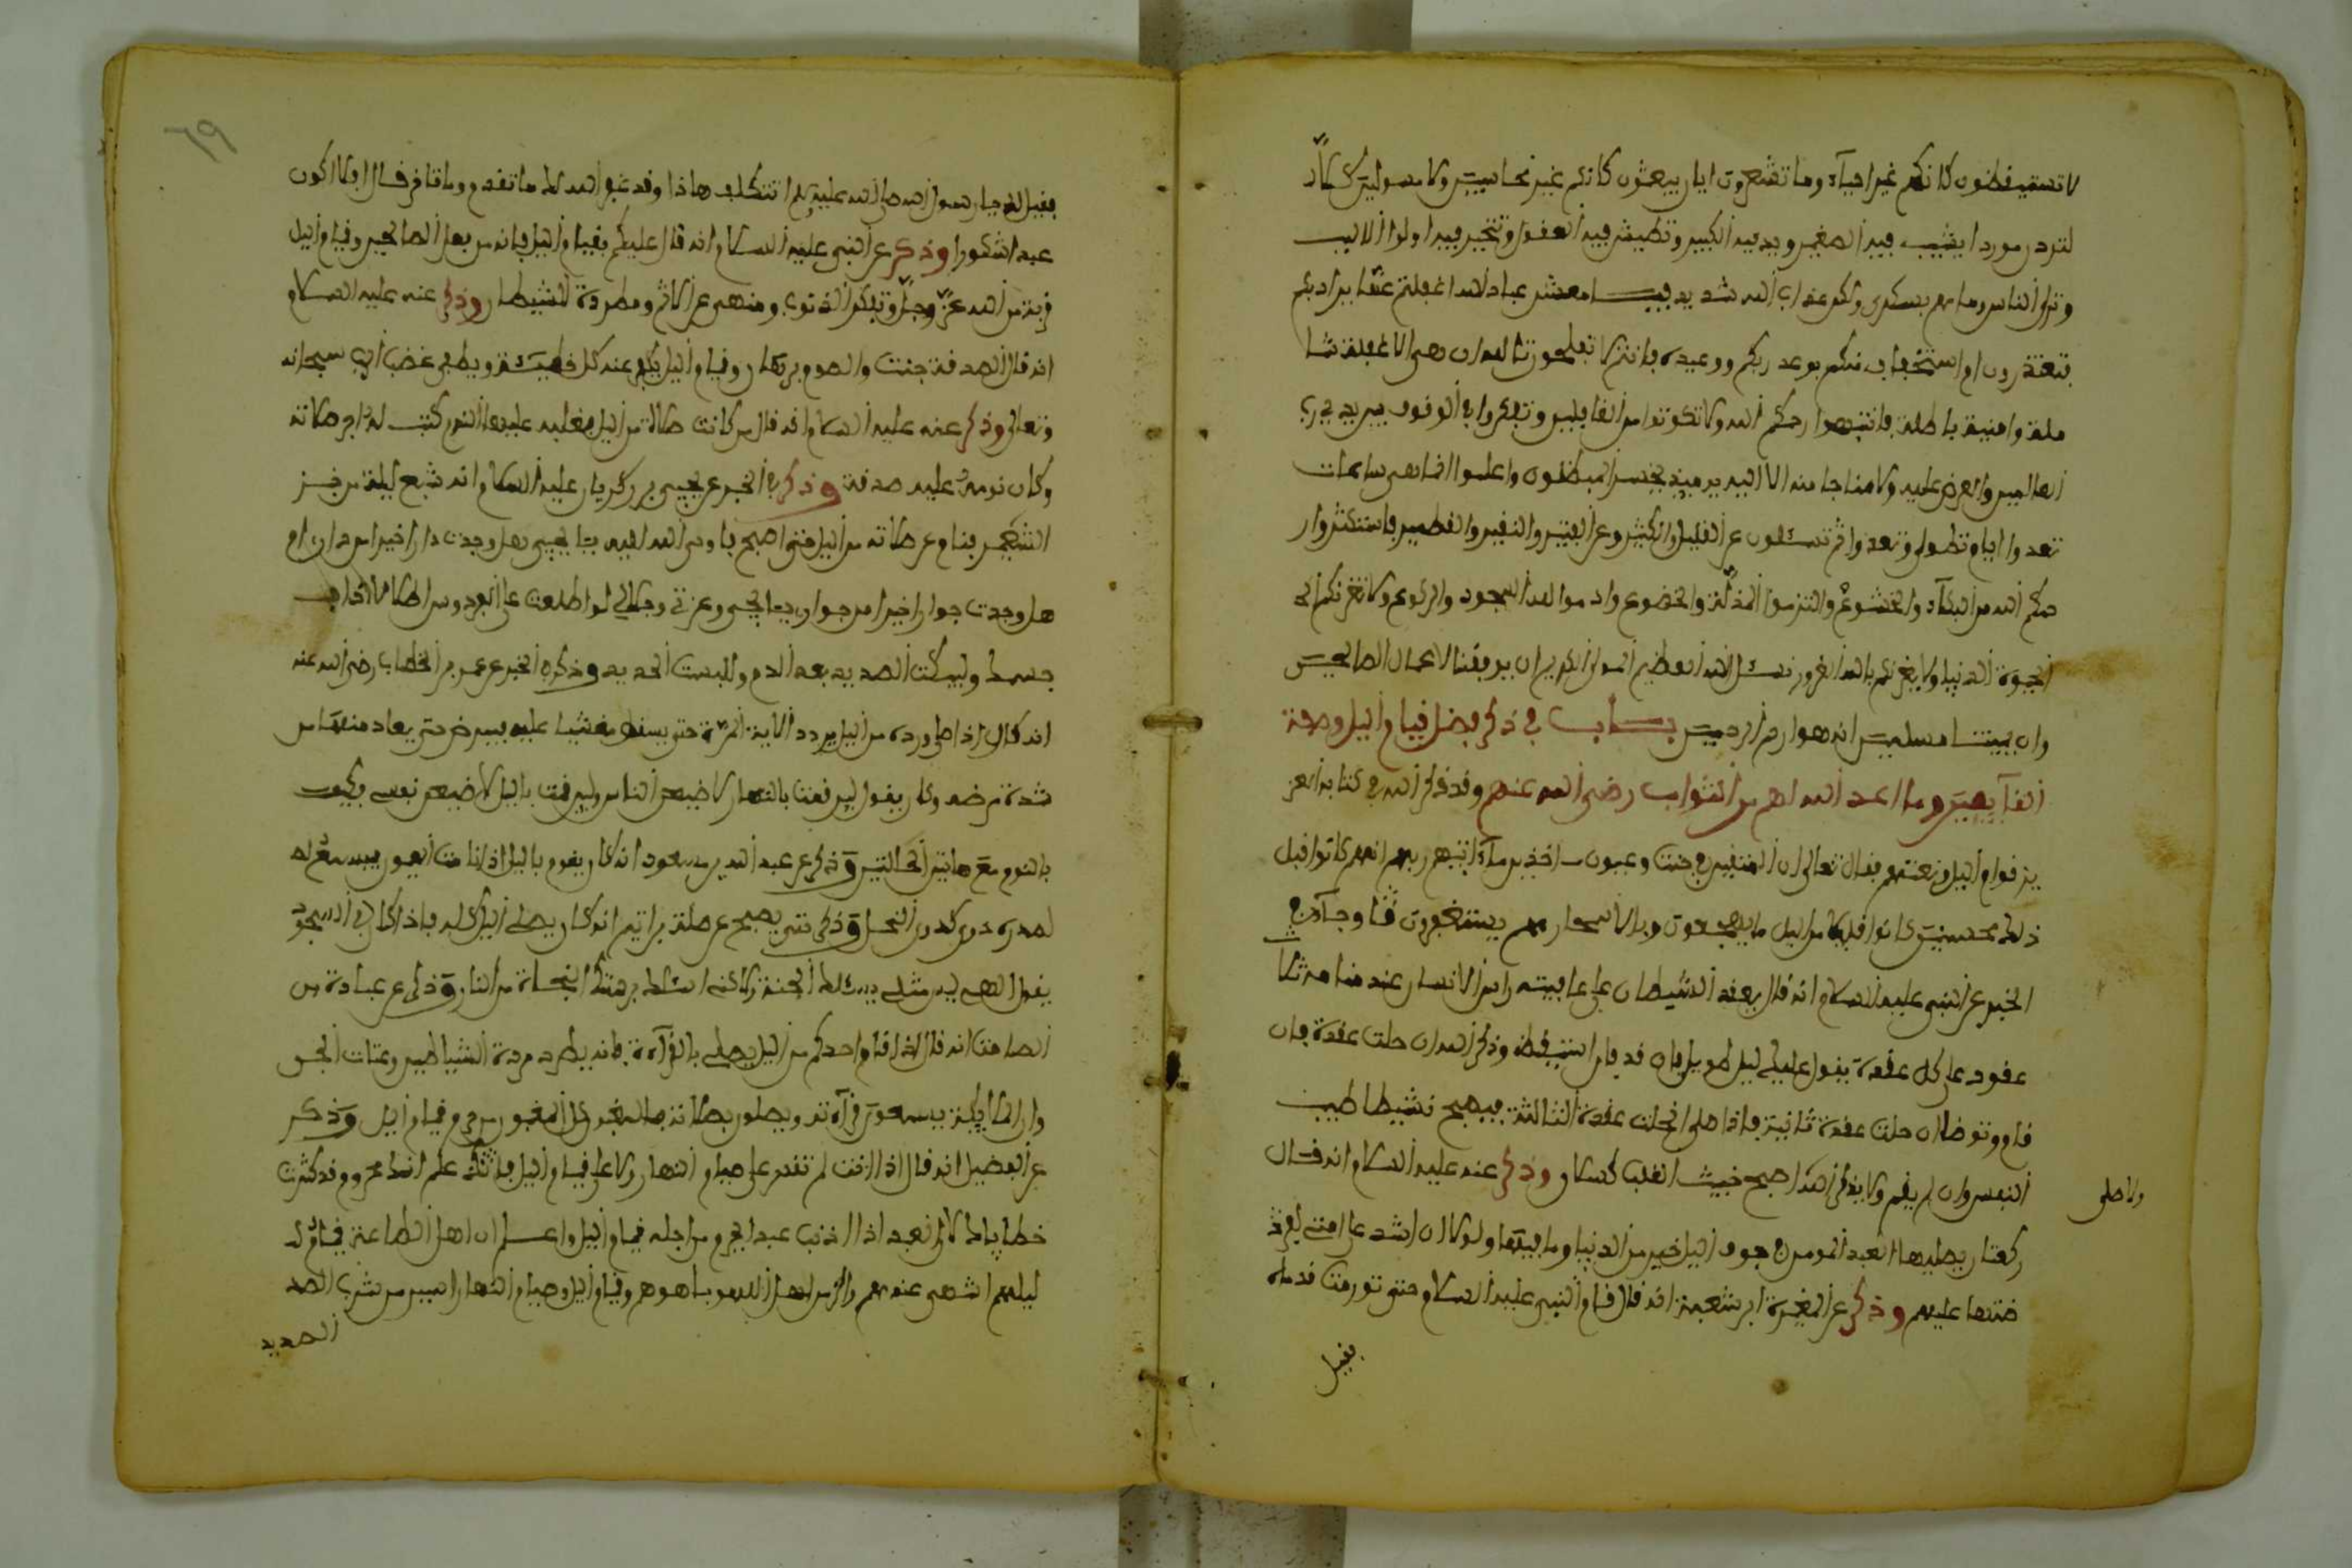 لا تستيقظون كانكم غير احياء وما تشعرون ايان يبعثون كانكم غير محاسبين ولا مسولين كلا
لتردن موردا يشيب فيه الصغير ويذ فيه الكبير وتطيش فيه العقول وتتحير فيه اولوا الالباب
وترى الناس وما هم بسكرى ولكن عذاب الله شديد فيا معشر عباد الله اغفلتم عما يراد بكم
فتعتذرون ام استخفاف منكم بوعد ربكم ووعيده فانتم لا تفلحون تالله ان هي الا غفلة شا
ملة وامنية باطلة فانتبهوا رحمكم الله ولا تكونوا من الغافلين وتفكروا في الوقوف بين يدي رب
العالمين والعرض عليه ولا منجا منه الا اليه يوميذ يخسر المبطلون واعلموا انما هي ساعات
تعد وايام تطوى وتعد وا ثم تسئلون عن القليل والكثير وعن الفتيل والنقير والقطمير فاستكثروا ر
حمكم الله من البكاء والخشوع والتزموا المذلة والخضوع واد موا لله السجود والركوع ولا تغرنكم الحـ
الحيوة الدنيا ولا يغرنكم بالله الغرور نسئل الله العظيم المولى الكريم ان يوفقنا لاعمال الصالحين
وان يميتنا مسلمين انه هو ارحم الرحمين باب في ذكر فضل قيام الليل وصفة
القآيمين وما اعد الله لهم من الثواب رضي الله عنهم وقد ذكر الله في كتابه العز
يز قوام الليل ونعتهم فقال تعالى ان المتقين في جنت وعيون اخذين مآ اتيهم ربهم انهم كانوا قبل
ذلك محسنين كانوا قليلا من اليل ما يهجعون وبالاسحار هم يستغفرون وجآء في
الخبر عن النبي عليه السلام انه قال يعقد الشيطان على قافية راس الانسان عند منامه ثلا
عقود على كل عقدة يقول عليك ليل طويل فان استيقظ وذكر الله ان حلت عقدة فان
قام وتوضا ان حلت عقدة ثانية فاذا صلى انحلت عقدة الثالثة فيصبح نشيطا طيب
النفس وان لم يقم ولا يذكر الله اصبح خبيث القلب كسلان وذكر عنه عليه السلام انه قال
ولا صلى
ركعتان يصليها العبد المومن في جوف الليل خير من الدنيا وما فيها ولولا ان اشد على امتي لفرـ
ضتها عليهم وذكر عن المغيرة ابن شعبة انه قال قام النبي عليه السلام حتى تورمت قدماه
فقيل
٦٩
فقيل له يا رسول الله صلى الله عليه وسلم اتتكلف هاذا وقد غفر الله لك ما تقدم وما تاخر قال افلا اكون
عبدا شكورا وذكر عن النبي عليه السلام انه قال عليكم بقيام اليل فانه من فعل الصالحين وقيام اليل
قربة من الله عز وجل وتكفر الذنوب ومنهى عن الاثم ومطردة للشيطان وذكر عنه عليه السلام
انه قال الصدقة جنت والصوم برهان وقيام اليل يكفر عنه كل خطيئة ويطفي غضب الرب سبحانه
وتعالى وذكر عنه عليه السلام انه قال من كانت صلاة من اليل فغلبه عليها النوم كتب له اجر صلاته
وكان نومه عليه صدقة وذكر في الخبر عن يحيى بن زكريا عليه السلام انه شبع ليلة من خبز
الشعير فنام عن صلاته من اليل حتى اصبح فاوحى الله اليه يا يحيى هل وجدت دارا خيرا من داري ام
هل وجدت جوارا خيرا من جواري يا يحيى وعزتي وجلالي لو اطلعت على الفردوس اطلاعا لذاب
جسمك ولبكيت الصديد بعد الدم وللبست الحديد وذكر في الخبر عن عمر بن الخطاب رضي الله عنه
انه كان اذا صلى ورده من اليل يردد الاية المرة حتى يسقط مغشيا عليه فيمرض حتى يعاد منها من
شدة مرضه وكان يقول لين نمت بالنهار لا ضيعن الناس ولين نمت باليل لاضيعن نفسي فكيف
بالنوم مع هاتين الحالتين وذكر عن عبد الله بن مسعود انه كان يقوم باليل اذا نامت العيون فيسمع له
لصدره دوي كدوي النحل وذكر حتى يصبح عن صلة بن اشيم انه كان يصلي اليل كله فاذا كان في السحر
يقول الهي ليس مثلي يسئلك الجنة ولاكني اسئلك برحمتك النجاة من النار وذكر عن عبادة بن
الصامت انه قال اذا قام احدكم من اليل يصلي بالقرآءة فانه يطرد مردة الشياطين وعتات الجن
وان الملايكة يسمعون قرآءته ويصلون بصلاته وذكر
عن الفضيل انه قال اذا انت لم تقدر على صيام النهار ولا على قيام اليل فاعلم انك محروم وقد كثرت
خطاياك لان العبد اذا اذنب عبدا يحرم من اجله قيام اليل واعلم ان اهل الطاعة قيام
ليلهم اشهى عندهم والذ من اهل اللهو بلهوهم وقيام اليل وصيام النهار ايسر من شرب الصد
الصديد